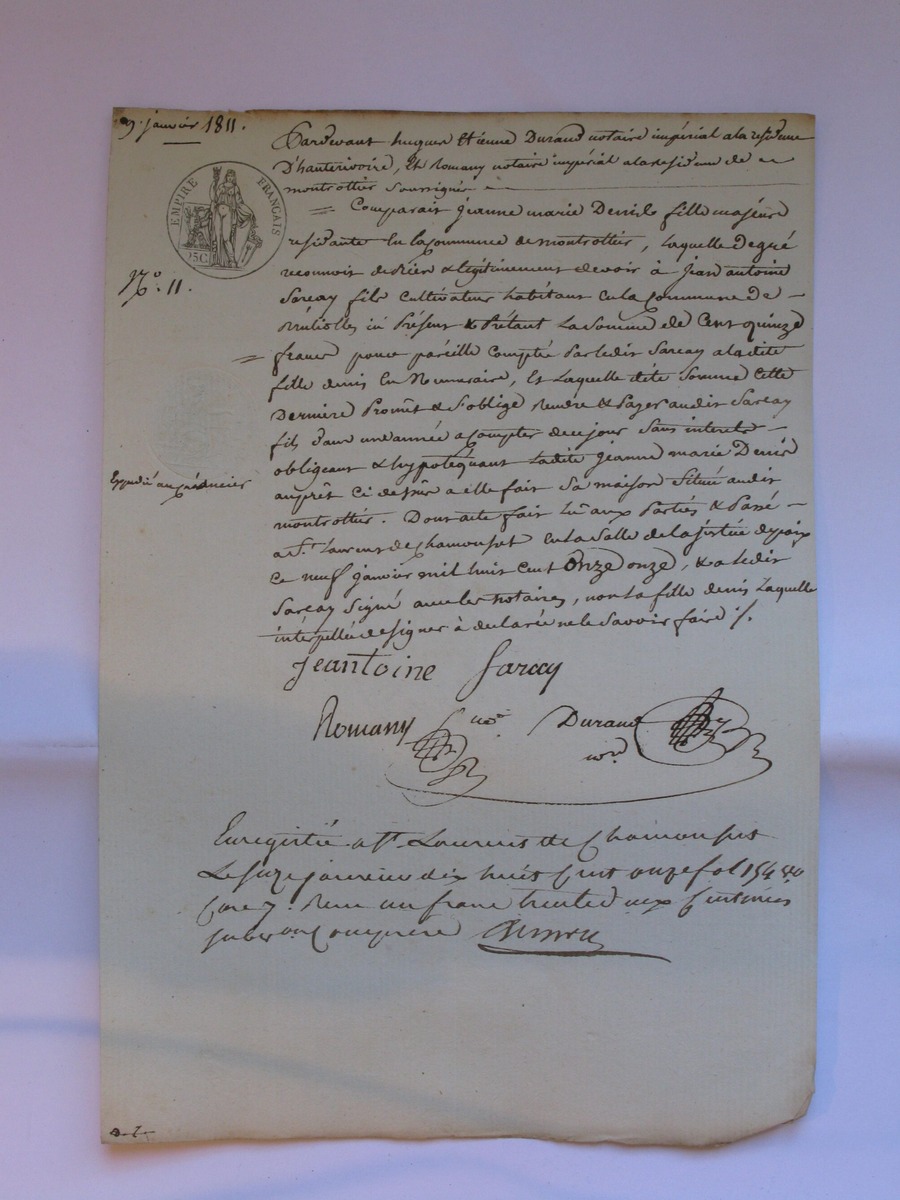 9. janvier 1811.
EMPIRE FRANÇAIS
25C
N.º 11.
Pardevant hugues Etienne Durand notaire impérial a la residence
D'hauterivoire, Et Romany notaire impérial a la residence de
montrottier soussignés
= Comparait jeanne marie Denis fille majeure
residante En la Commune de montrottier, Laquelle de gré
reconnoit devoir & légitimement devoir à jean antoine
Sarcay fils cultivateur habitant en la commune de
Brulliolles ici Présent & Prêtant La somme de Cent quinze
= francs pour pareille comptée Par ledit Sarcay a ladite
fille denis En Numeraire, Et Laquelle dite somme Cette
Derniere Promêt & S'oblige Rendre & Payer audit Sarcay
fils dans une année a compter de ce jour sans interets
Expedié au créancier
obligeant & hypotequant Ladite jeanne marie Denis
au prêt ci dessus a elle fait sa maison située audit
montrottier. Dont acte fait lû aux Parties & Passé
a St. Laurent de chamousset en la salle de la justice de paix
ce neuf janvier mil huit cent Onze onze, & a ledit
Sarcay signé avec les notaires, non la fille denis Laquelle
interpellée de signer à declarée ne le savoir faire ./.
Jeantoine Sarcay
Romany no.re Durand
no.re
Enregistré a St. Laurent de Chamousset
Le janvier dix huit Cent onze fol 154
Case 7. Recu un franc trente deux Centimes